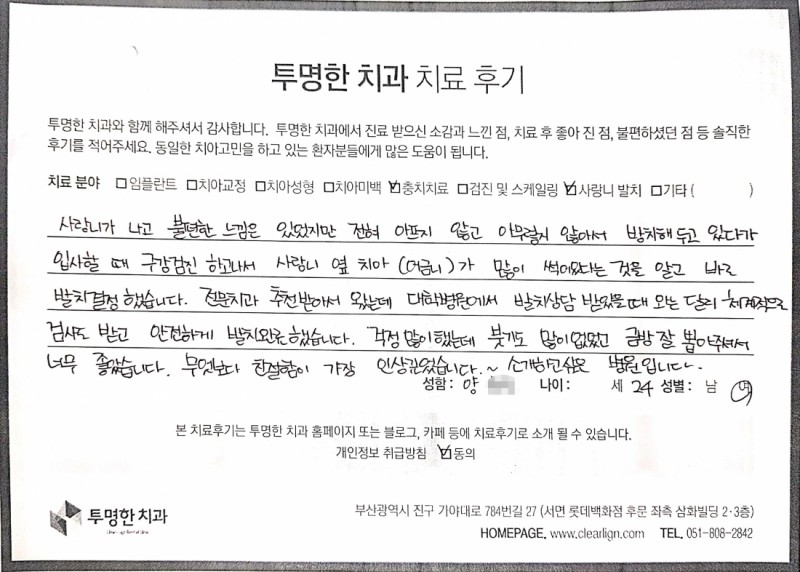 투명한 치과 치료 후기
투명한 치과와 함께 해주셔서 감사합니다. 투명한 치과에서 진료 받으신 소감과 느낀 점, 치료 후 좋아 진 점, 불편하셨던 점 등 솔직한
후기를 적어주세요. 동일한 치아고민을 하고 있는 환자분들에게 많은 도움이 됩니다.
치료 분야 □임플란트 □치아교정 □치아성형 □치아미백 ☑충치치료 □검진 및 스케일링 ☑사랑니 발치 □기타 ( )
사랑니가 나고 불편한 느낌은 있었지만 전혀 아프지 않고 아무렇지 않아서 방치해 두고 있다가
입사할 때 구강검진 하고나서 사랑니 옆 치아 (어금니)가 많이 썩어있다는 것을 알고 바로
발치결정 했습니다. 전문치과 추천받아서 왔는데 대학병원에서 발치상담 받았을때 와는 달리 체계적으로
검사도 받고 안전하게 발치완료했습니다. 걱정 많이했는데 붓기도 많이없었고 금방 잘 뽑아주셔서
너무 좋았습니다. 무엇보다 친절함이 가장 인상깊었습니다.~ 소개하고싶은 병원입니다.
성함: 양 나이: 세 24 성별: 남 여
본 치료후기는 투명한 치과 홈페이지 또는 블로그, 카페 등에 치료후기로 소개 될 수 있습니다.
개인정보 취급방침 ☑동의
투명한 치과
부산광역시 진구 가야대로 784번길 27 (서면 롯데백화점 후문 좌측 삼화빌딩 2·3층)
HOMEPAGE. www.clearlign.com TEL. 051-808-2842